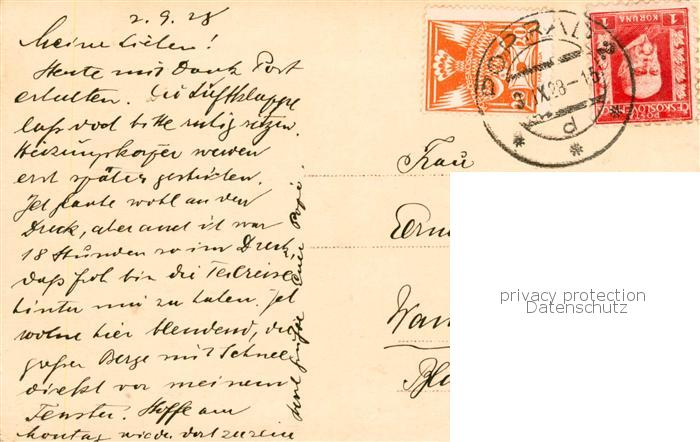 2.9.28
Meine Lieben!
Heute mit Dank Post
erhalten. Die Luftklappe
laß doch bitte ruhig setzen.
Heizungskoffer werden
erst später geschickt.
Ich glaube wohl an den
Dreck, aber auch ich war
18 Stunden so im Dreck,
daß froh bin die Teilreise
hinter mir zu haben. Ich
wohne hier blendend, die
großen Berge mit Schnee
direkt vor meinem
Fenster. Hoffe am
Montag wieder dort zu sein
Euer Papi
POPRAD
3.IX.28-15
d
1
KORUNA
POSTA
ČESKOSLOVENSKO
Frau
privacy protection
Datenschutz